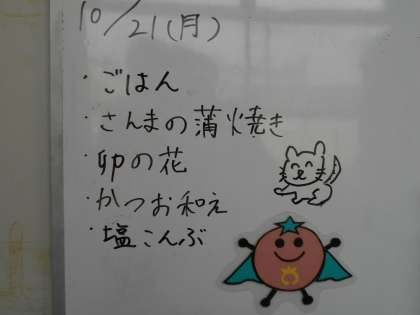 10/21(月)
・ごはん
・さんまの蒲焼き
・卯の花
・かつお和え
・塩こんぶ